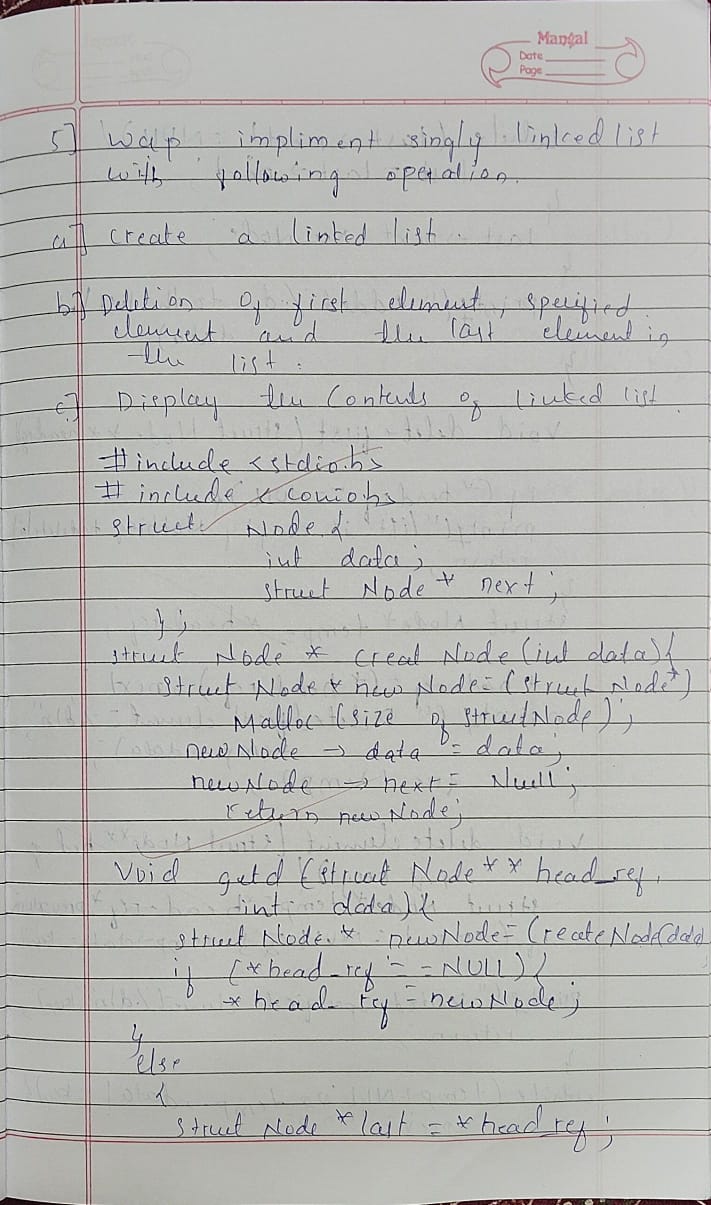 Mangal
Date
Page
5] Wap impliment singly linked list
with following operation.
a] create a linked list.
b] Deletion of first element, specified
element and the last element in
the list.
c] Display the Contents of linked list
#include <stdio.h>
# include < conio.h>
struct Node {
int data;
struct Node * next;
};
struct Node * creat Node (int data){
struct Node * new Node = (struct Node*)
Malloc (size of struct Node);
newNode → data = data;
newNode → next = Null;
return new Node;
Void getd (struct Node** head_ref,
int data){
struct Node * newNode = CreateNode(data
if (*head_ref == NULL){
* head_ref = newNode;
}
else
{
struct Node *last = *head_ref;